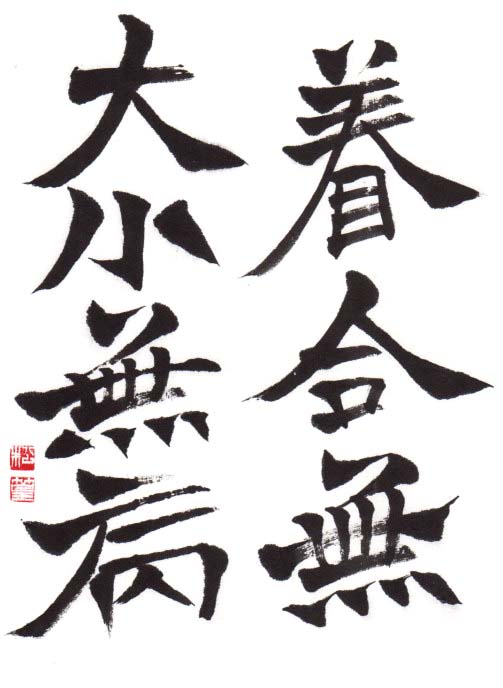 眷合無
大小無病